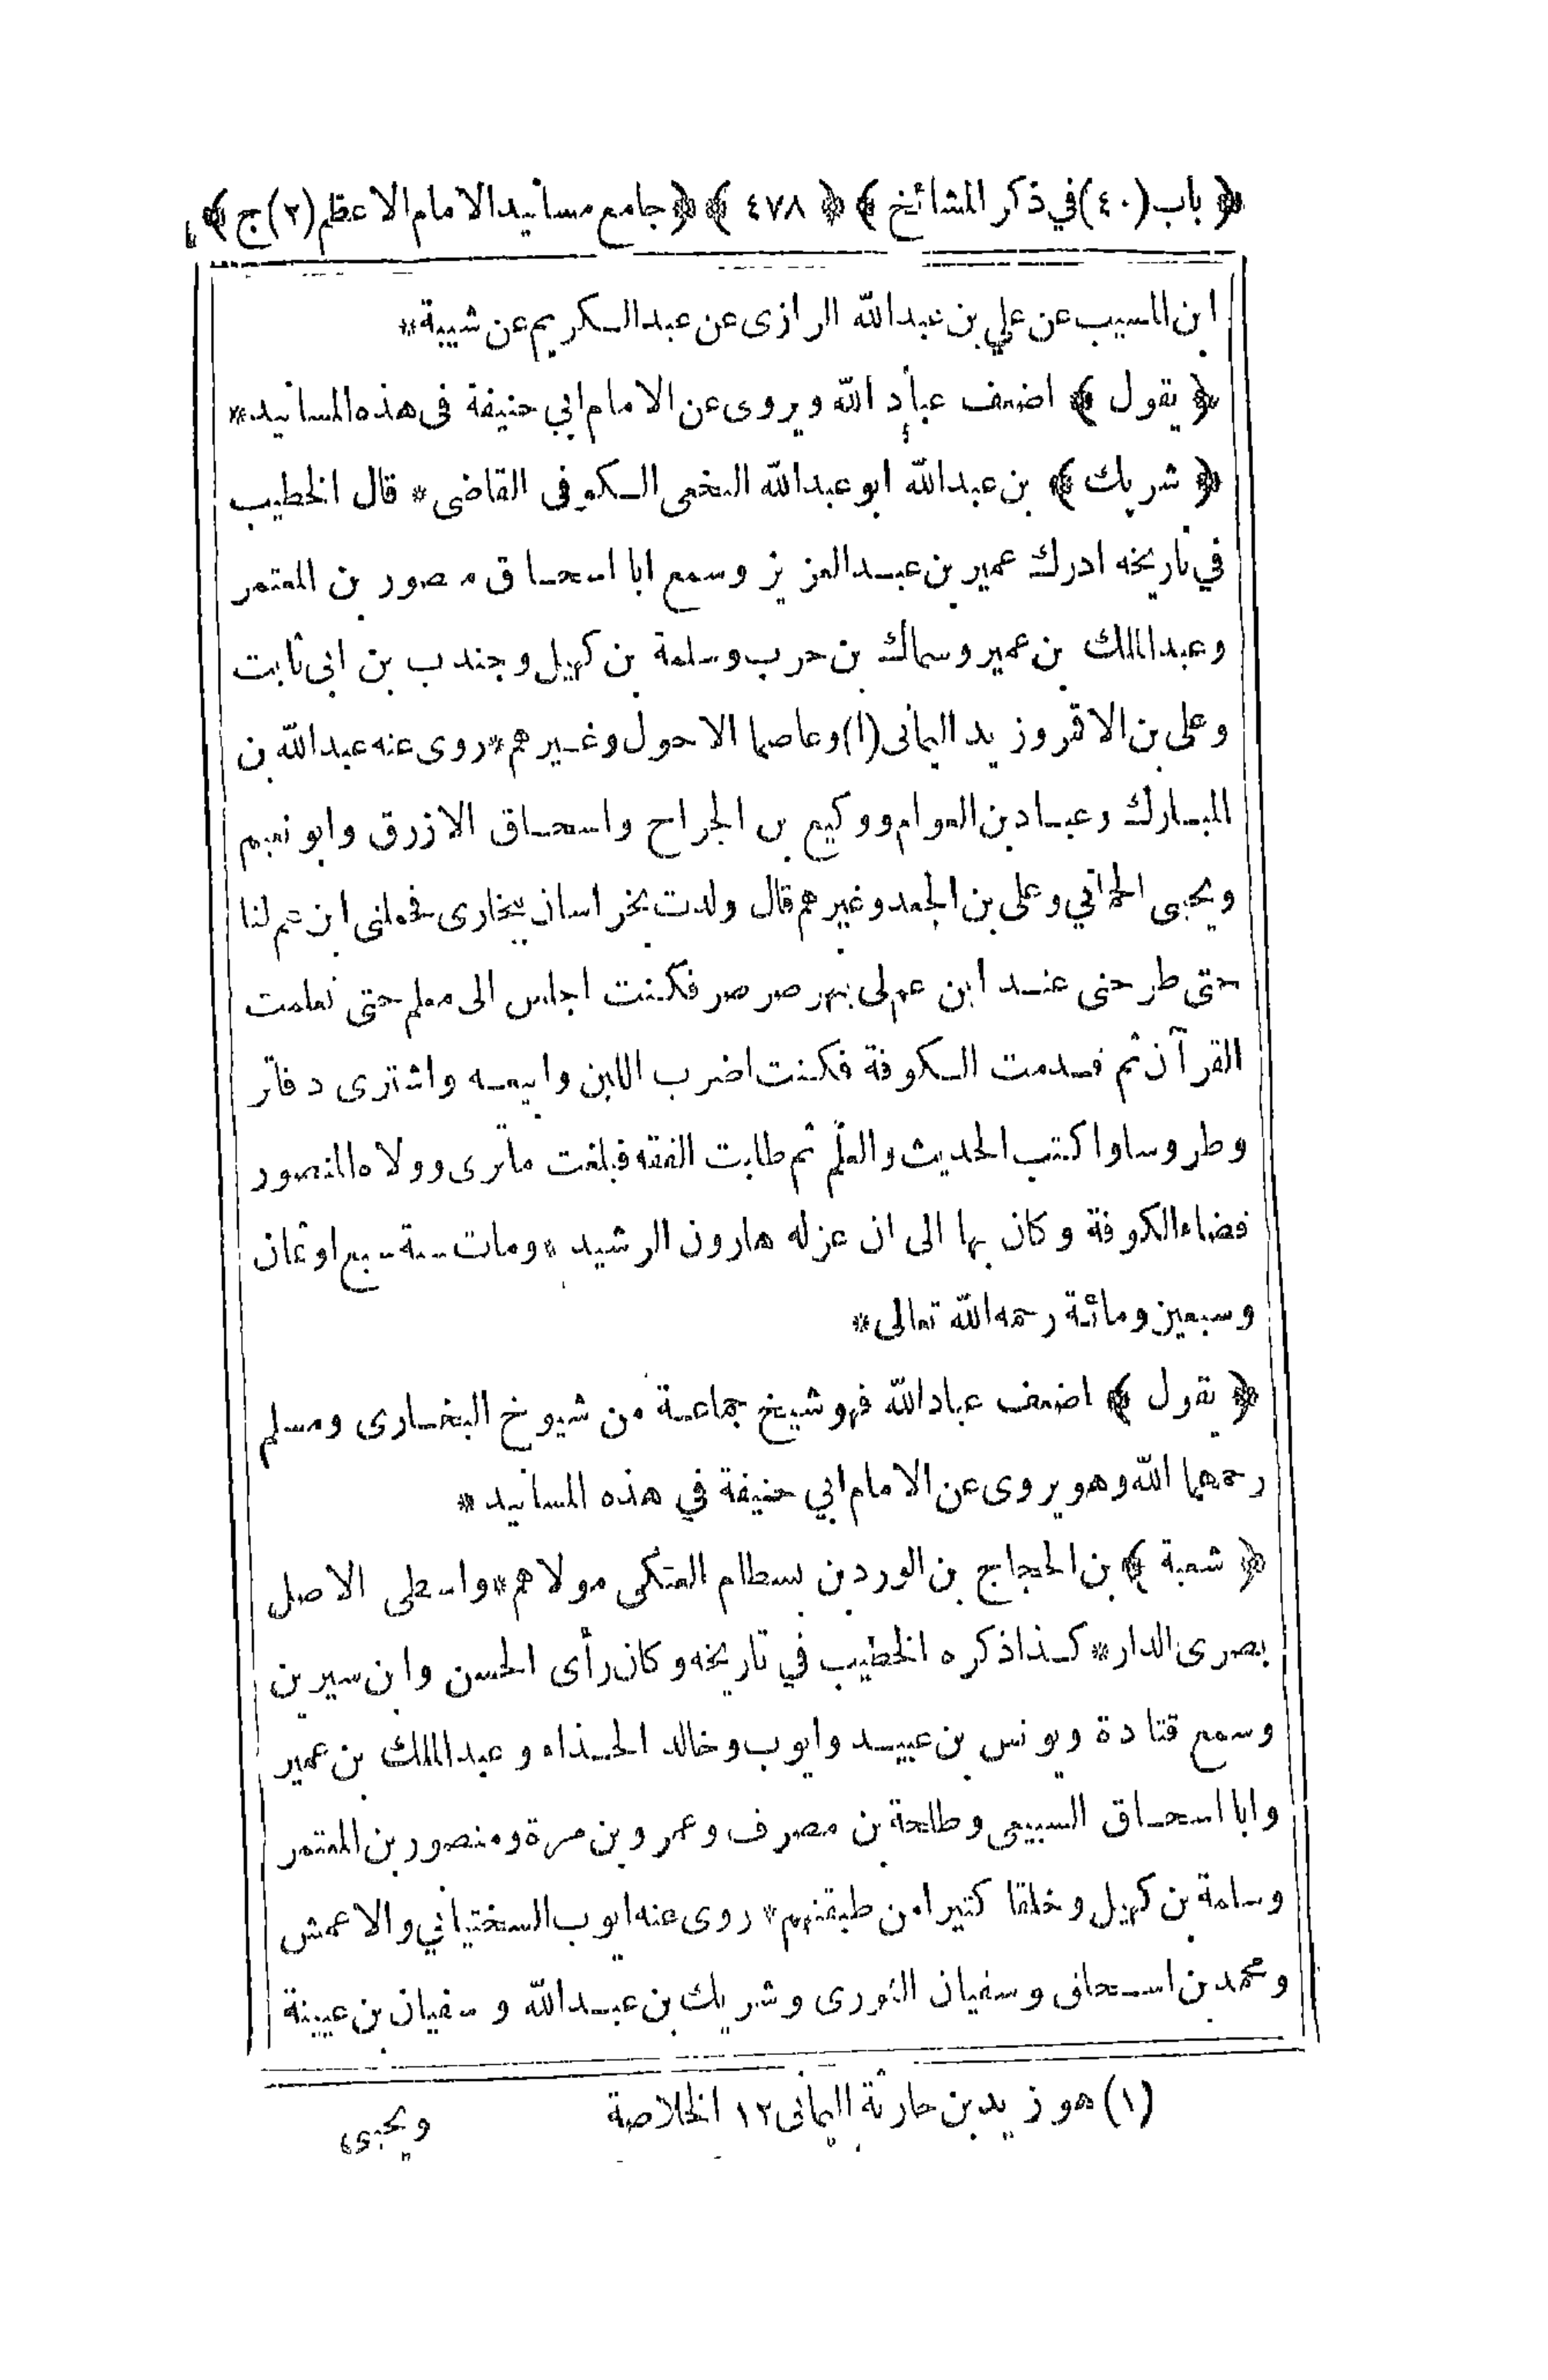 ﴿ باب (٤٠) في ذكر المشائخ ﴾ ﴿ ٤٧٨ ﴾ ﴿ جامع مسانيد الامام الاعظم (٢) ج ﴾
ابن المسيب عن علي بن عبدالله الرازى عن عبدالكريم عن شيبة *
﴿ يقول ﴾ اضعف عباد الله ويروى عن الامام ابي حنيفة فى هذه المسانيد *
﴿ شريك ﴾ بن عبدالله ابو عبدالله النخعى الكوفى القاضى * قال الخطيب
في تاريخه ادرك عمير بن عبد العزيز وسمع ابا اسحاق منصور بن المعتمر
وعبد الملك بن عمير وسماك بن حرب وسلمة بن كهيل وجندب بن ابى ثابت
وعلى بن الاقمر وزيد اليمانى (١) وعاصما الاحول وغيرهم * روى عنه عبدالله بن
المبارك وعباد بن العوام ووكيع بن الجراح واسحاق الازرق وابو نعيم
ويحيى الحمانى وعلى بن الجعد وغيرهم قال ولدت بخراسان ببخارى فحملنى ابن عم لنا
حتى طرحنى عند ابن عم لى بنهر صرصر فكنت اجلس الى معلم حتى تعلمت
القرآن ثم قدمت الكوفة فكنت اضرب اللبن وابيعه واشترى دفاتر
وطروسا واكتب الحديث والعلم ثم طلبت الفقه فبلغت ماترى وولاه المنصور
قضاء الكوفة وكان بها الى ان عزله هارون الرشيد * ومات سنة سبع او ثمان
وسبعين ومائة رحمه الله تعالى *
﴿ يقول ﴾ اضعف عباد الله فهو شيخ جماعة من شيوخ البخارى ومسلم
رحمهما الله وهو يروى عن الامام ابي حنيفة في هذه المسانيد *
﴿ شعبة ﴾ بن الحجاج بن الورد بن بسطام العتكى مولاهم * واسطى الاصل
بصرى الدار * كذا ذكره الخطيب في تاريخه وكان رأى الحسن وابن سيرين
وسمع قتادة ويونس بن عبيد وايوب وخالد الحذاء وعبد الملك بن عمير
وابا اسحاق السبيعى وطلحة بن مصرف وعمرو بن مرة ومنصور بن المعتمر
وسلمة بن كهيل وخلقا كثيرا من طبقتهم * روى عنه ايوب السختيانى والاعمش
ومحمد بن اسحاق وسفيان الثورى وشريك بن عبدالله وسفيان بن عيينة
(١) هو زيد بن حارثة اليمانى ١٢ الخلاصة
ويحيى